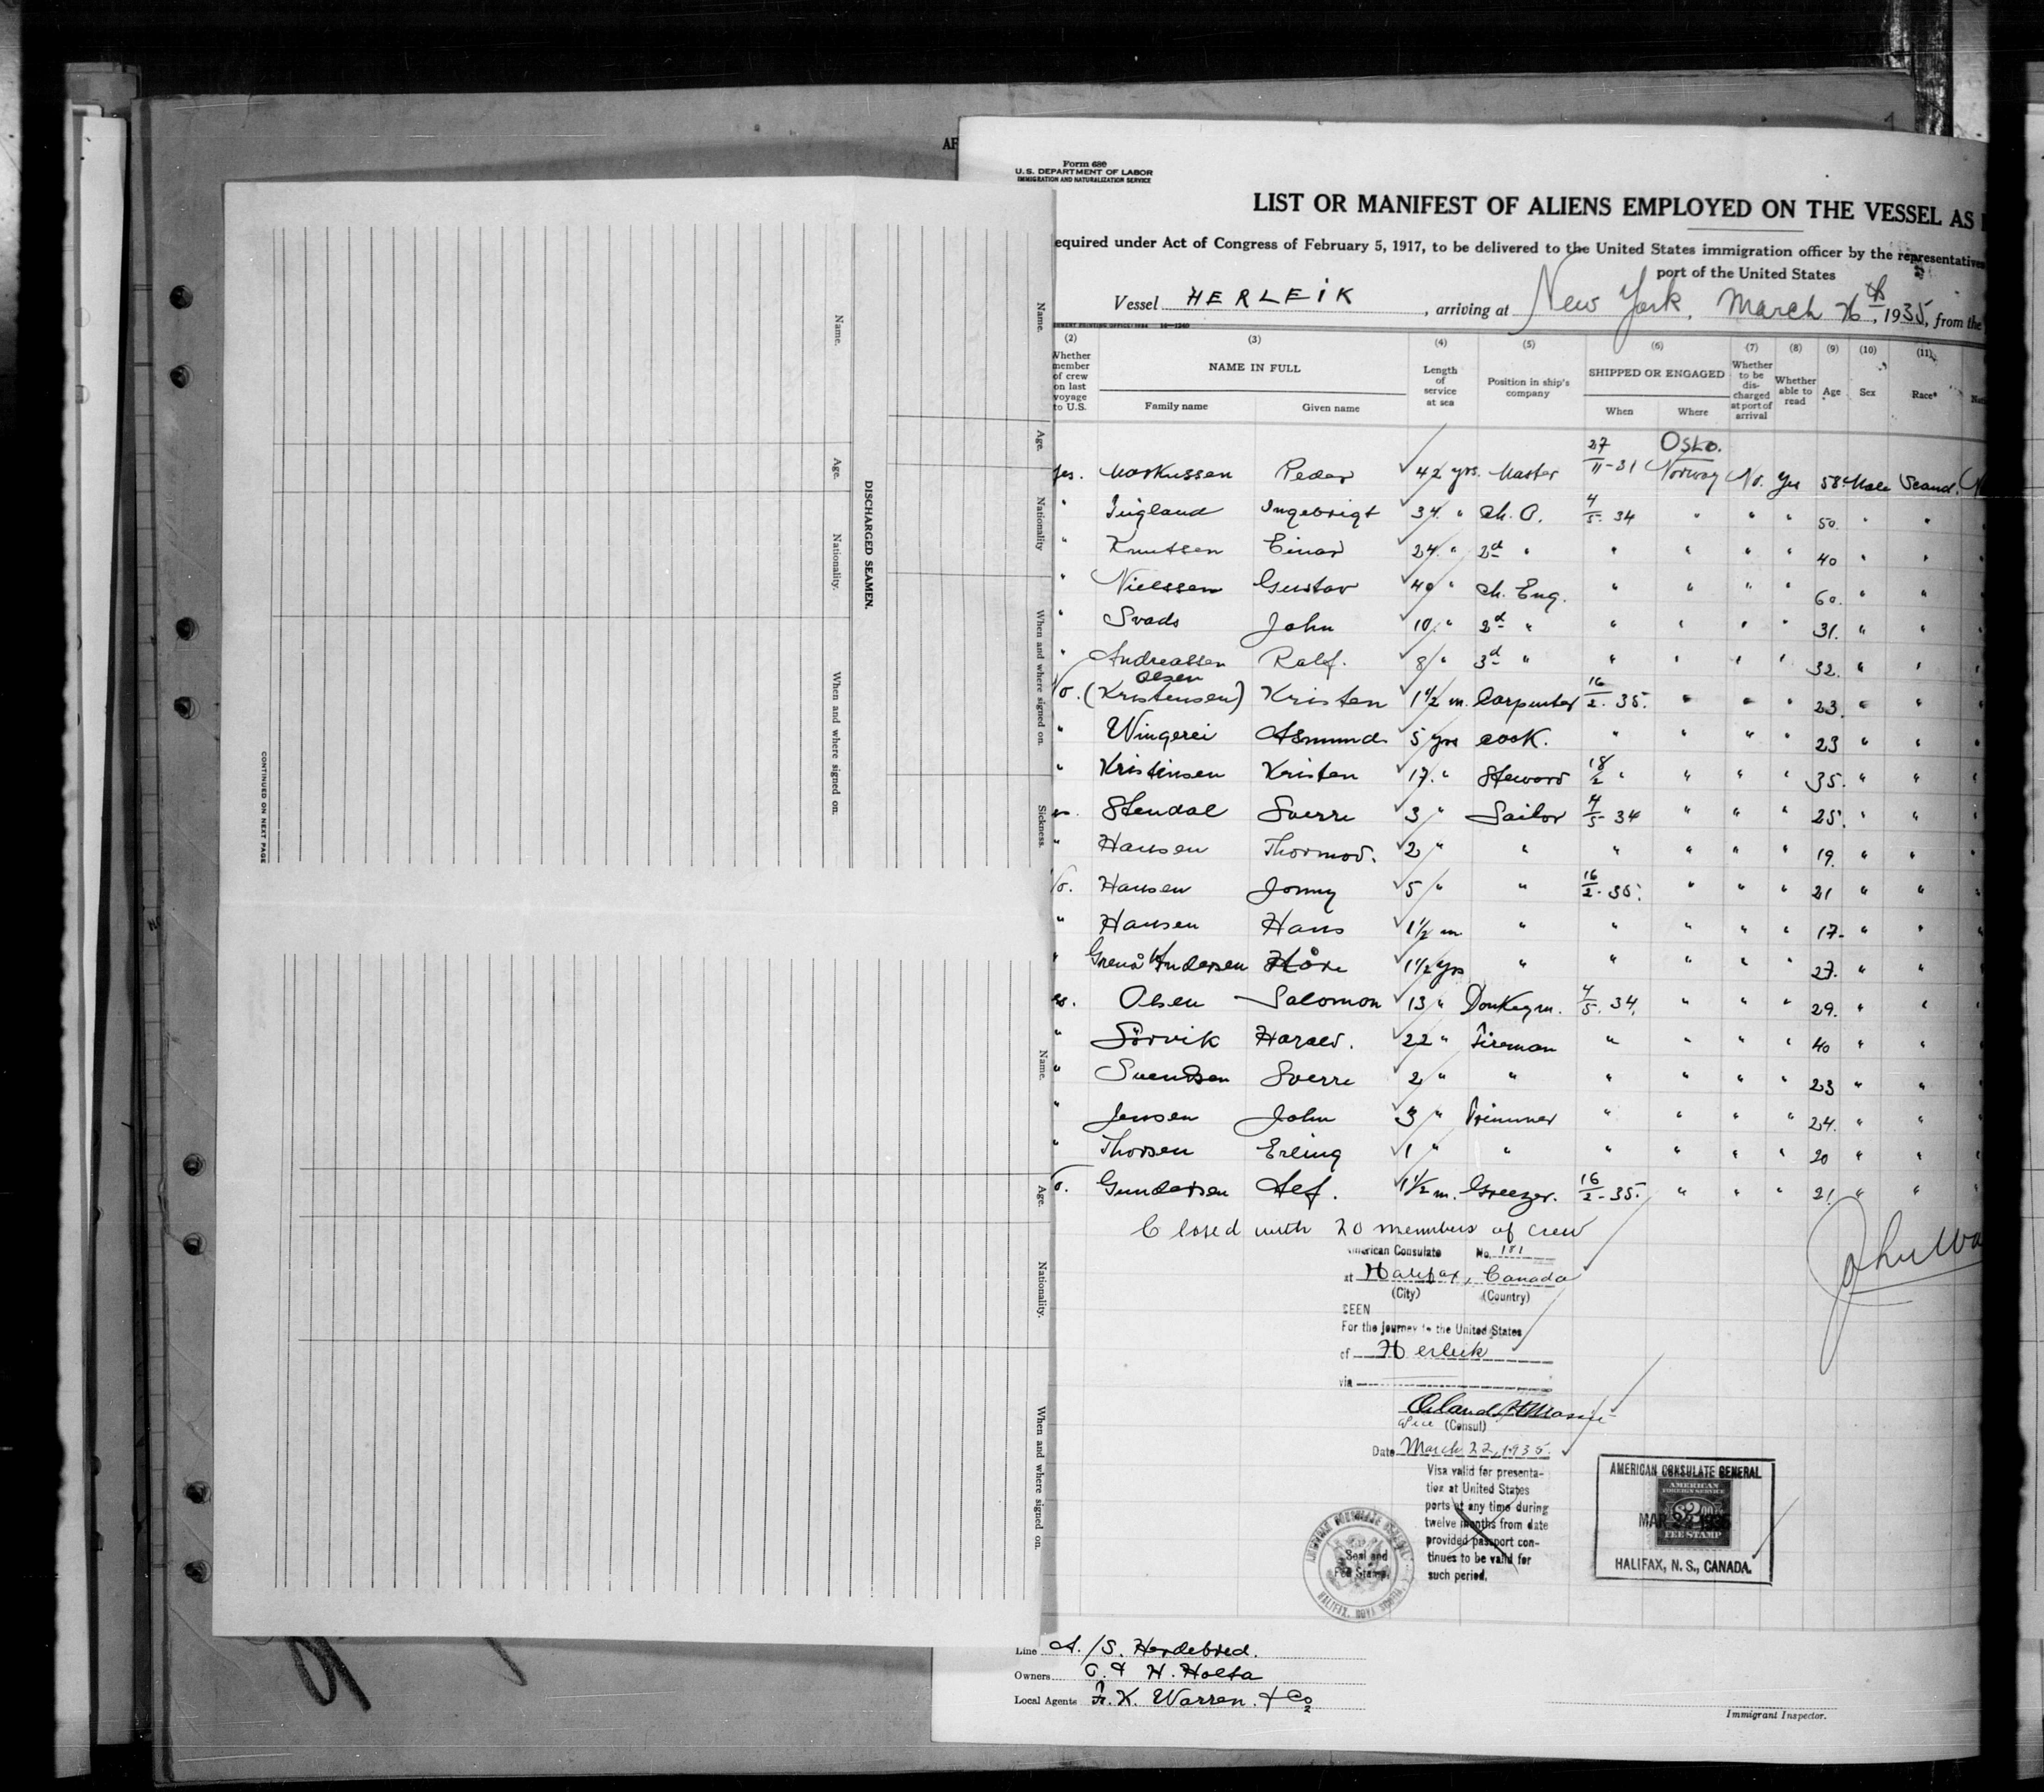 Form 680
U.S. DEPARTMENT OF LABOR
IMMIGRATION AND NATURALIZATION SERVICE
LIST OR MANIFEST OF ALIENS EMPLOYED ON THE VESSEL AS
equired under Act of Congress of February 5, 1917, to be delivered to the United States immigration officer by the representatives
port of the United States
Vessel HERLEIK , arriving at New York, March 26th, 1935, from the
(2) (3) (4) (5) (6) (7) (8) (9) (10) (11)
Whether member of crew on last voyage to U.S. NAME IN FULL Family name Given name Length of service at sea Position in ship's company SHIPPED OR ENGAGED When Where Whether to be discharged at port of arrival Whether able to read Age Sex Race*
yes. Markussen Peder 42 yrs. Master 27/11-31 Oslo. Norway No. Yes 58 Male Scand.
" Ingebrigt 34 " Ch. O. 4/5-34 " " " 50. " "
" Knutsen Einar 24 " 2d " " " " " 40 " "
" Nielssen Gustav 40 " Ch. Eng. " " " " 60. " "
" Svads John 10 " 2d " " " " " 31. " "
" Andreassen Ralf. 8 " 3d " " " " " 32. " "
No. Olsen (Kristensen) Kristen 1 1/2 m. Carpenter 16/2-35. " " " 23. " "
" Wingerei Asmund 5 yrs cook. " " " " 23 " "
" Kristinsen Kristen 17 " Steward 18/2 " " " " 35. " "
es. Stendal Sverre 3 " Sailor 4/5-34 " " " 25. " "
" Hansen Thormod. 2 " " " " " " 19. " "
No. Hansen Jonny 5 " " 16/2-35. " " " 21 " "
" Hansen Hans 1 1/2 m " " " " " 17. " "
" Andersen Kåre 1 1/2 yrs " " " " " 27. " "
es. Olsen Salomon 13 " Donkeym. 4/5. 34. " " " 29. " "
" Sörvik Harald. 22 " Fireman " " " " 40 " "
" Svendsen Sverre 2 " " " " " " 23 " "
" Jensen John 3 " Trimmer " " " " 24. " "
" Thorsen Erling 1 " " " " " " 20 " "
No. Gundersen Alf. 1 1/2 m. Greezer. 16/2-35. " " " 21. " "
Closed with 20 members of crew
American Consulate No. 181
at Halifax, Canada
(City) (Country)
SEEN
For the journey to the United States
of Herleik
via
Vice (Consul)
Date March 22, 1935.
Visa valid for presenta-
tion at United States
ports at any time during
twelve months from date
provided passport con-
tinues to be valid for
such period.
Seal and
Fee Stamp.
AMERICAN CONSULATE GENERAL
HALIFAX, NOVA SCOTIA
AMERICAN CONSULATE GENERAL
AMERICAN
FOREIGN SERVICE
$2.00
MAR 22 1935
FEE STAMP
HALIFAX, N. S., CANADA.
Line A./S. Hardebred.
Owners O. & H. Holta
Local Agents F. K. Warren. & Co
Immigrant Inspector.
Name.
Age.
Nationality
When and where signed on.
Sickness.
DISCHARGED SEAMEN.
Name.
Age.
Nationality.
When and where signed on.
CONTINUED ON NEXT PAGE
Name.
Age.
Nationality.
When and where signed on.